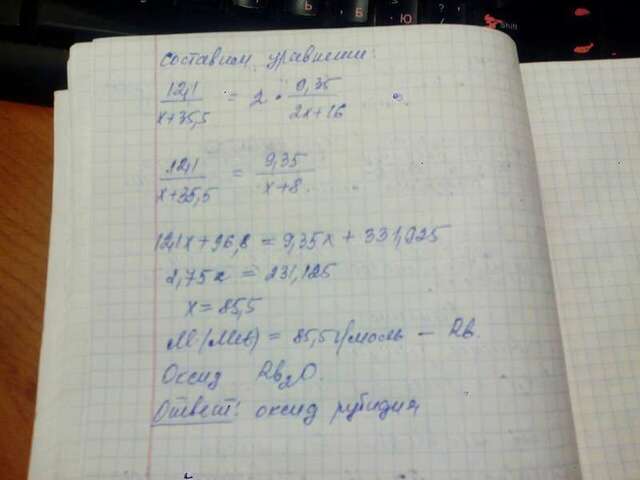 Составим уравнение:
12,1 / x+35,5 = 2 · 9,35 / 2x+16
12,1 / x+35,5 = 9,35 / x+8
12,1x+96,8 = 9,35x + 331,925
2,75x = 235,125
x = 85,5
M(Me) = 85,5 г/моль — Rb.
Оксид Rb₂O.
Ответ: оксид рубидия
Б
Ю
?
Shift